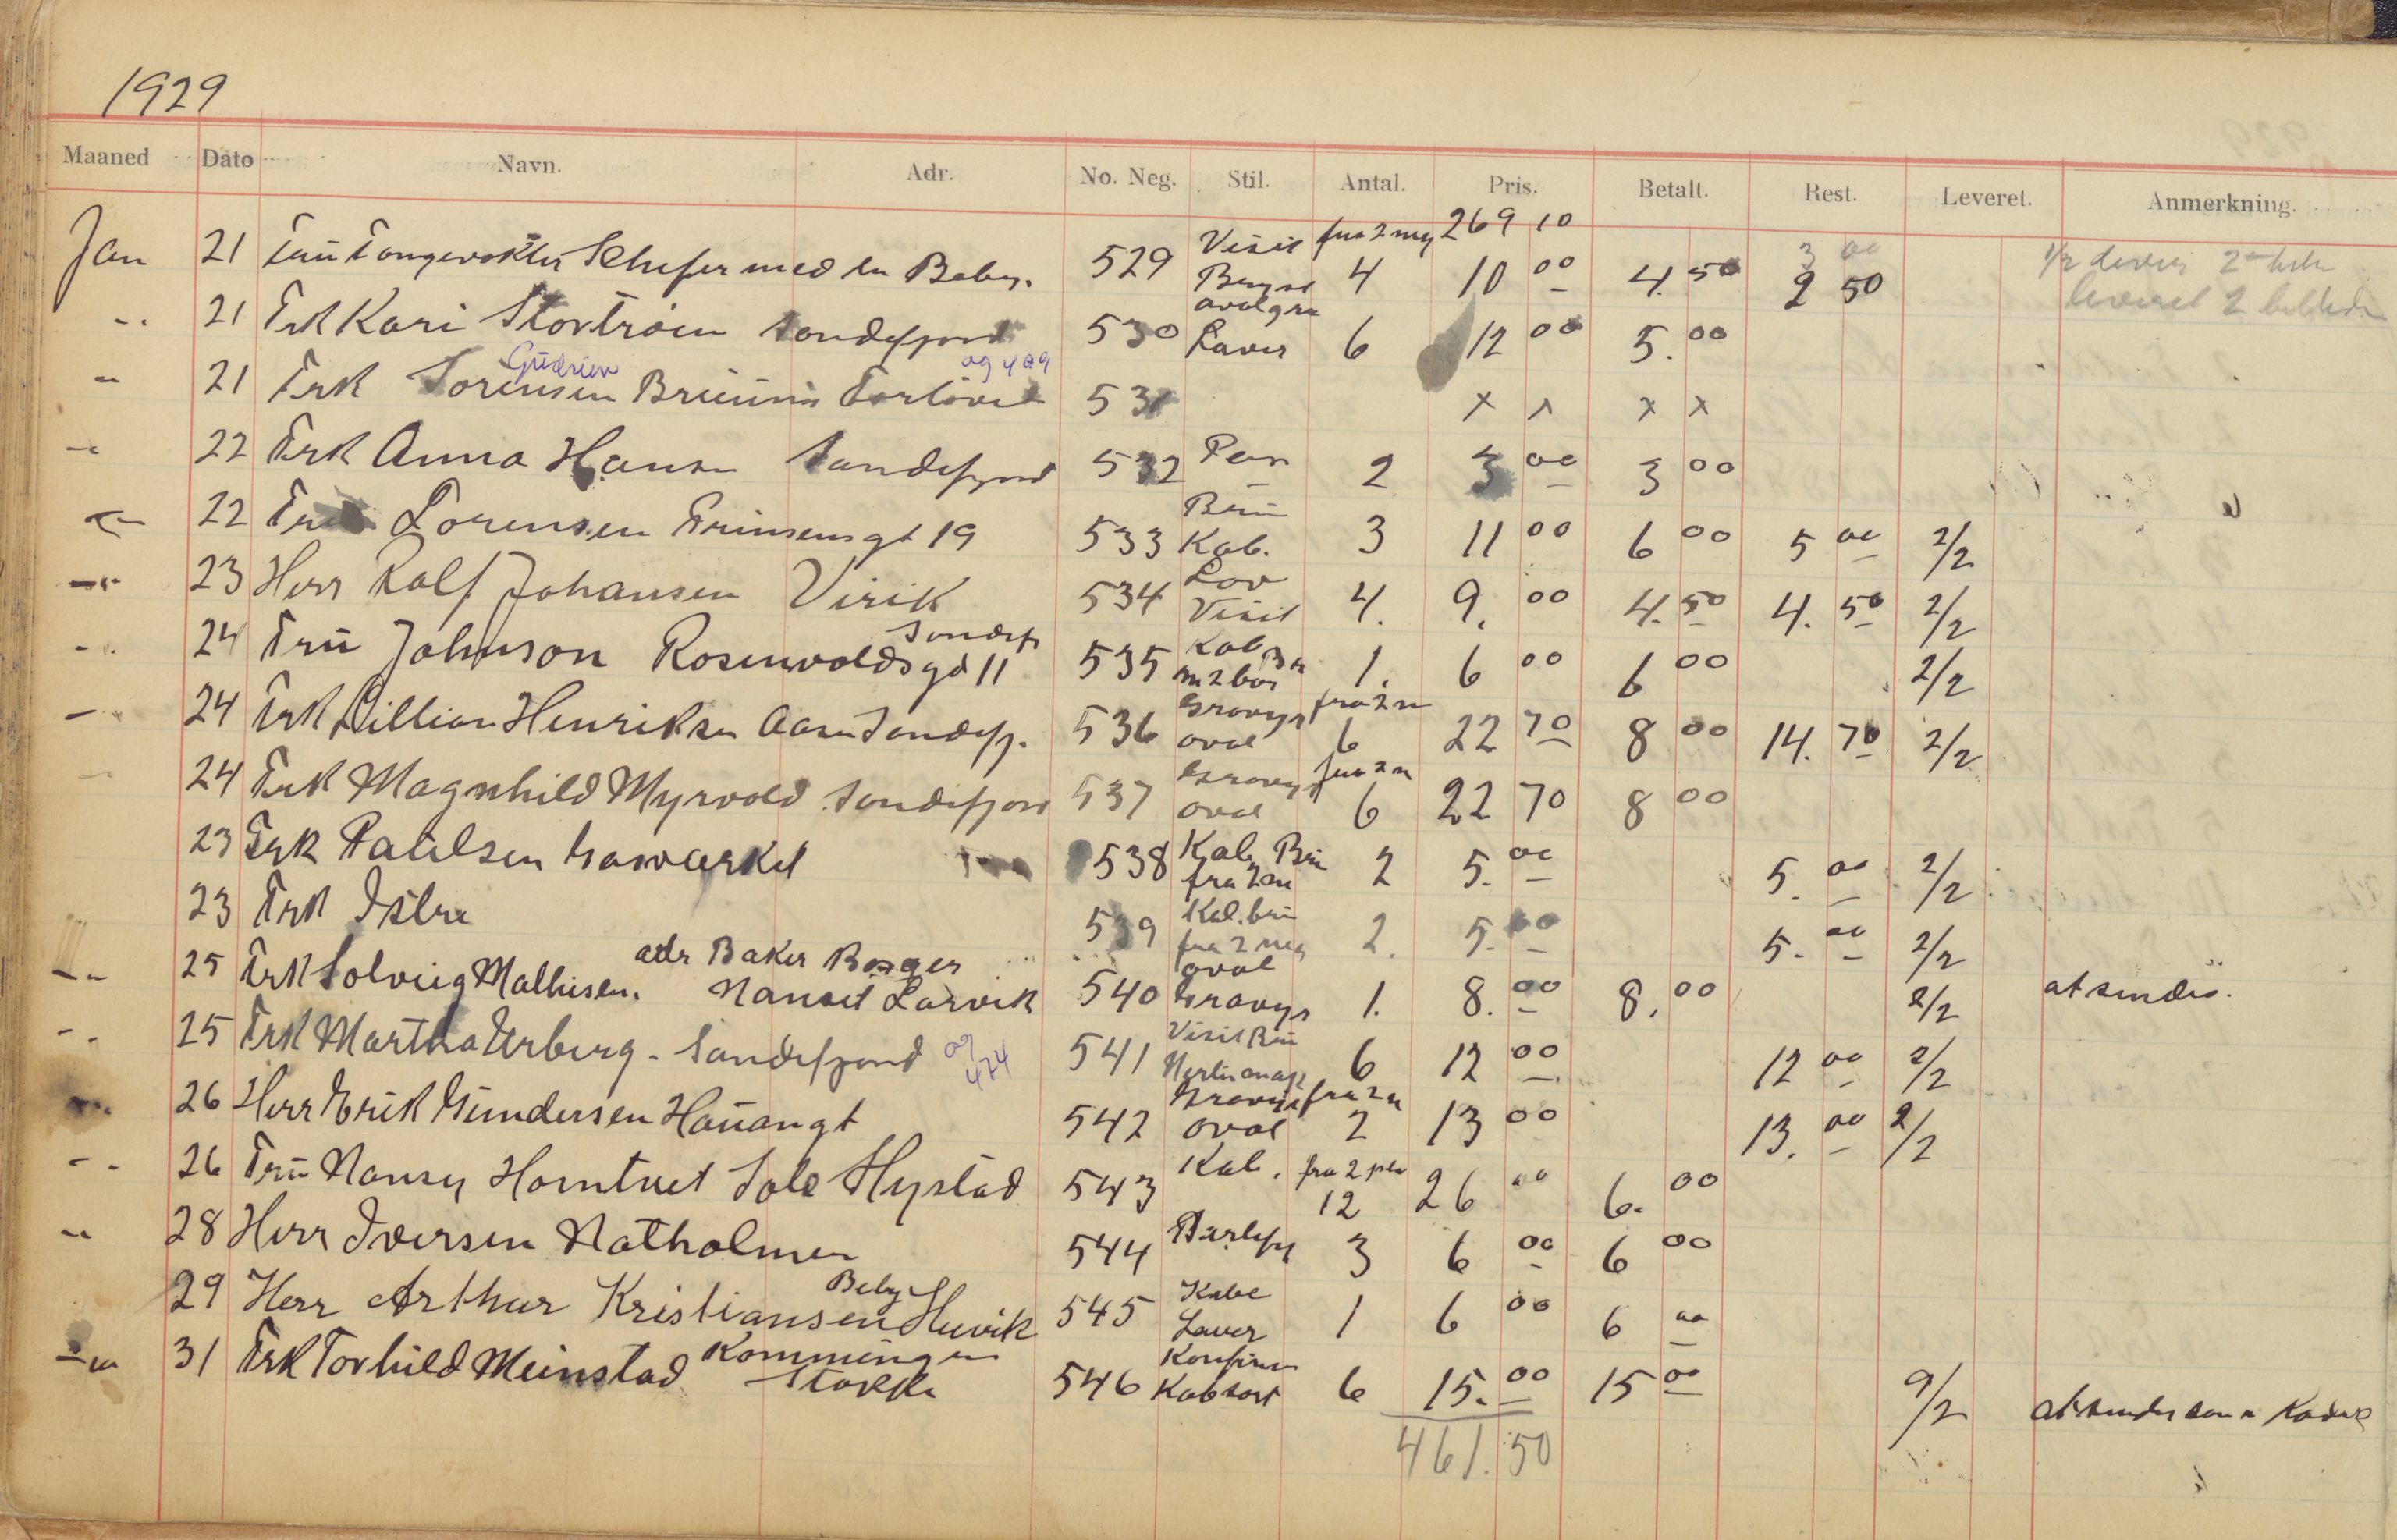 1929
Maaned Dato Navn. Adr. No. Neg. Stil. Antal. Pris. Betalt. Rest. Leveret. Anmerkning.
269 10
Jan 21 Schefer med en Baby. 529 Visit fra 2 neg 4 10 00 4.50 3 00 2 50 leveret 2
21 Frk Kari Sandefjord 530 Laver 6 12 00 5.00
Gudrun
21 Frk Sorensen 531 x x x x
22 Frk Anna Hansen Sandefjord 532 2 3 00 3 00
22 Lorensen 19 533 Brun Kab. 3 11 00 6 00 5 00 2/2
23 Herr Rolf Johansen Virik 534 Visit 4. 9. 00 4.50 4. 50 2/2
24 Frü Johnson Rosenvoldsgd 11 Sandefj 535 Kab 1. 6 00 6 00 2/2
24 Frk Lillian Henriksen Sandefj. 536 oval fra 2 n 6 22 70 8 00 14. 70 2/2
24 Frk Magnhild Myrvold Sandefjord 537 oval fra 2 n 6 22 70 8 00
23 Frk Paulsen 538 Kab Brn fra 2 2 5. 00 5. 00 2/2
23 Frk Istre 539 Kab. brü fra 2 neg 2. 5. 00 5. 00 2/2
25 Frk Solveig Mathisen. adr Baker Borger Nanset Larvik 540 oval Gravyr 1. 8. 00 8. 00 2/2 at sendes.
25 Frk Martha Urberg - Sandefjord og 474 541 Visit Brü 6 12 00 12 00 2/2
26 Herr Erik Gundersen Haüangt 542 oval fra 2 n 2 13 00 13. 00 2/2
26 Frü Nansy Horntvet Sole Hystad 543 Kab. fra 2 12 26 00 6. 00
28 Herr Iversen Natholmen 544 3 6 00 6 00
29 Herr Arthur Kristiansen Baby Huvik 545 Kabe Laver 1 6 00 6 00
31 Frk Torhild Meinstad Stokke 546 Konfirm Kabsort 6 15. 00 15 00 9/2
461.50